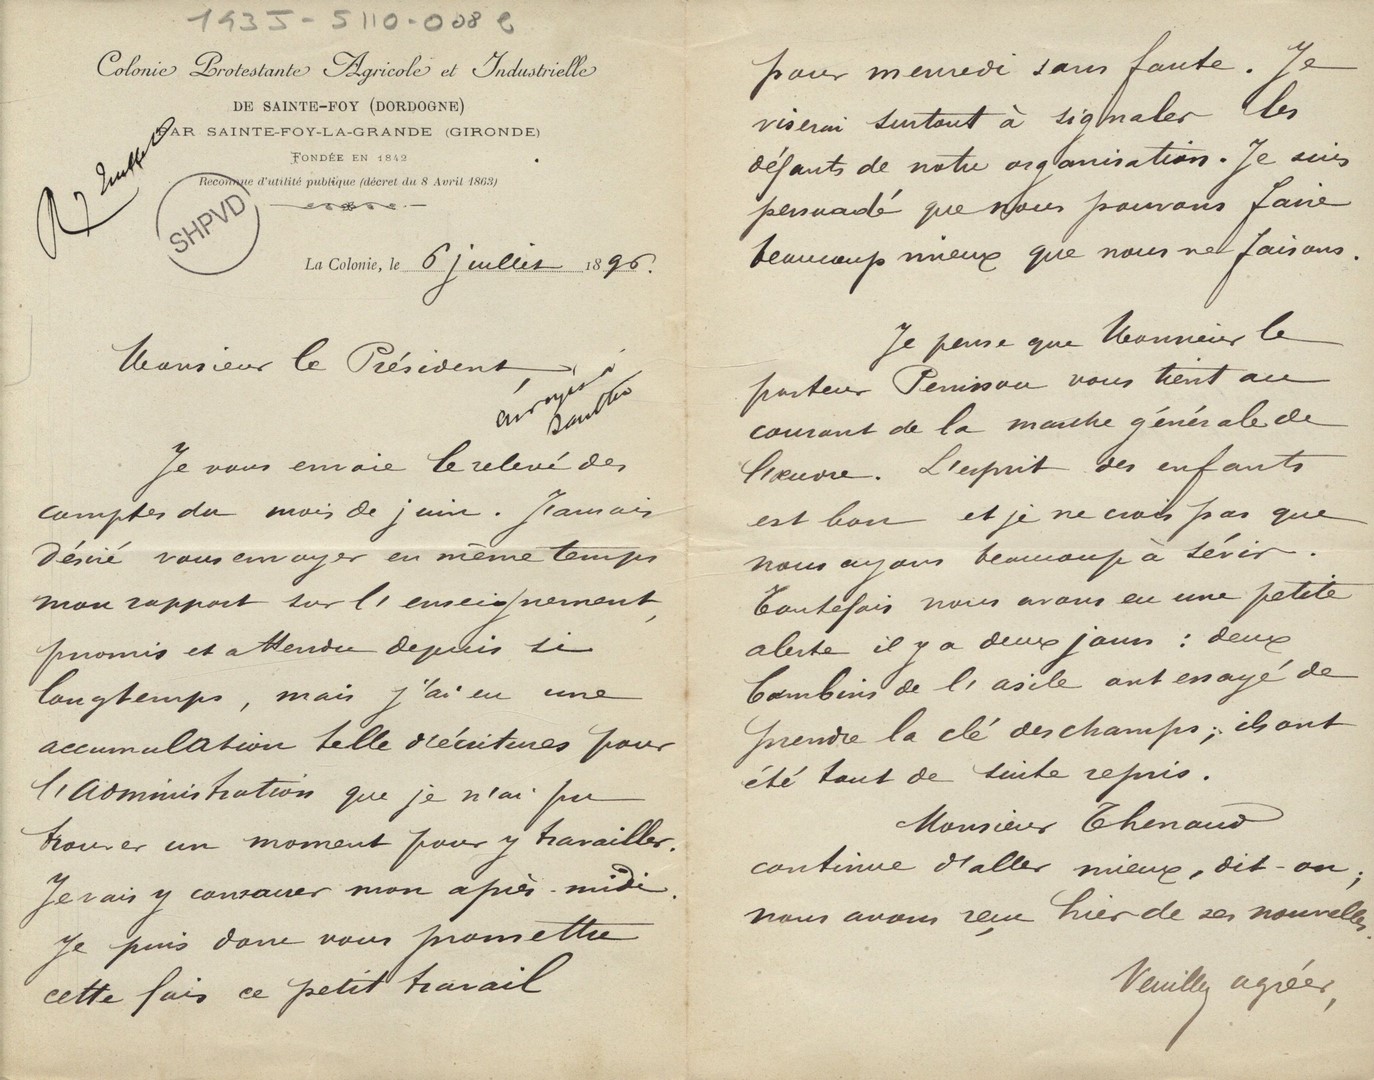 1935-5110-008 e
Colonie Protestante Agricole et Industrielle
DE SAINTE-FOY (DORDOGNE)
PAR SAINTE-FOY-LA-GRANDE (GIRONDE)
FONDÉE EN 1842
Reconnue d'utilité publique (décret du 8 Avril 1863)
SHPVD
La Colonie, le 6 juillet 1896.
Monsieur le Président
Je vous envoie le relevé des
comptes du mois de juin. J'aurais
désiré vous envoyer en même temps
mon rapport sur l'enseignement,
promis et attendu depuis si
longtemps, mais j'ai eu une
accumulation telle d'écritures pour
l'administration que je n'ai pu
trouver un moment pour y travailler.
Je vais y consacrer mon après-midi.
Je puis donc vous promettre
cette fois ce petit travail
pour mercredi sans faute. Je
viserai surtout à signaler les
défauts de notre organisation. Je suis
persuadé que nous pouvons faire
beaucoup mieux que nous ne faisons.
Je pense que Monsieur le
pasteur Penissou vous tient au
courant de la marche générale de
l'œuvre. L'esprit des enfants
est bon et je ne crois pas que
nous ayons beaucoup à sévir.
Toutefois nous avons eu une petite
alerte il y a deux jours : deux
bambins de l'asile ont essayé de
prendre la clé des champs; ils ont
été tout de suite repris.
Monsieur Thenaud
continue d'aller mieux, dit-on;
nous avons reçu hier de ses nouvelles.
Veuillez agréer,